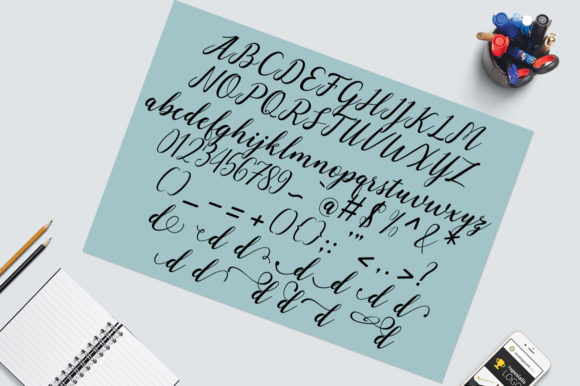 ABCDEFGHIJKLM
NOPQRSTUVWXYZ
abcdefghijklmnopqrstuvwxyz
0123456789~`@#$%^&*
()_-=+{}():;"'<,.>?
d d d d d d d
d d d d d d d
LOGO